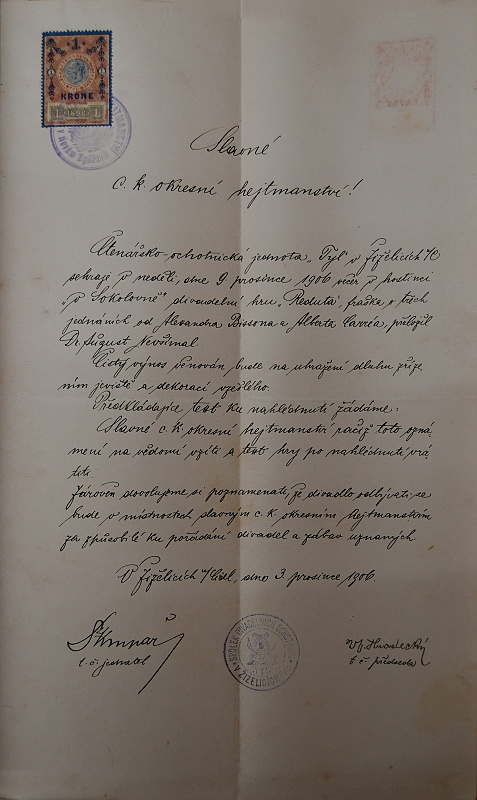 1
KRONE
1 1898 1
Slavné
c. k. okresní hejtmanství!
Čtenářsko-ochotnická jednota „Tyl" v Žiželicích n/C
sehraje v neděli, dne 9 prosince 1906 večer v hostinci
„v Sokolovně" divadelní hru „Reduta", fraška o třech
jednáních od Alexandra Bissona a Alberta Carréa, přeložil
Dr. August Nevšímal.
Čistý výnos věnován bude na uhražení dluhu zříze
ním jeviště a dekorací vzešlého.
Předkládajíce text ku nahlédnutí žádáme:
Slavné c. k. okresní hejtmanství račiž toto ozná-
mení na vědomí vzíti a text hry po nahlédnutí vrá
titi.
Zároveň dovolujeme si poznamenati, že divadlo odbývati se
bude v místnostech slavným c. k. okresním hejtmanstvím
za způsobilé ku pořádání divadel a zábav uznaných.
V Žiželicích n/Cidl., dne 3. prosince 1906.
t. č. jednatel
t č. předseda
SPOLEK DIVADELNÍCH OCHOTNÍKŮ
V ŽIŽELICÍCH